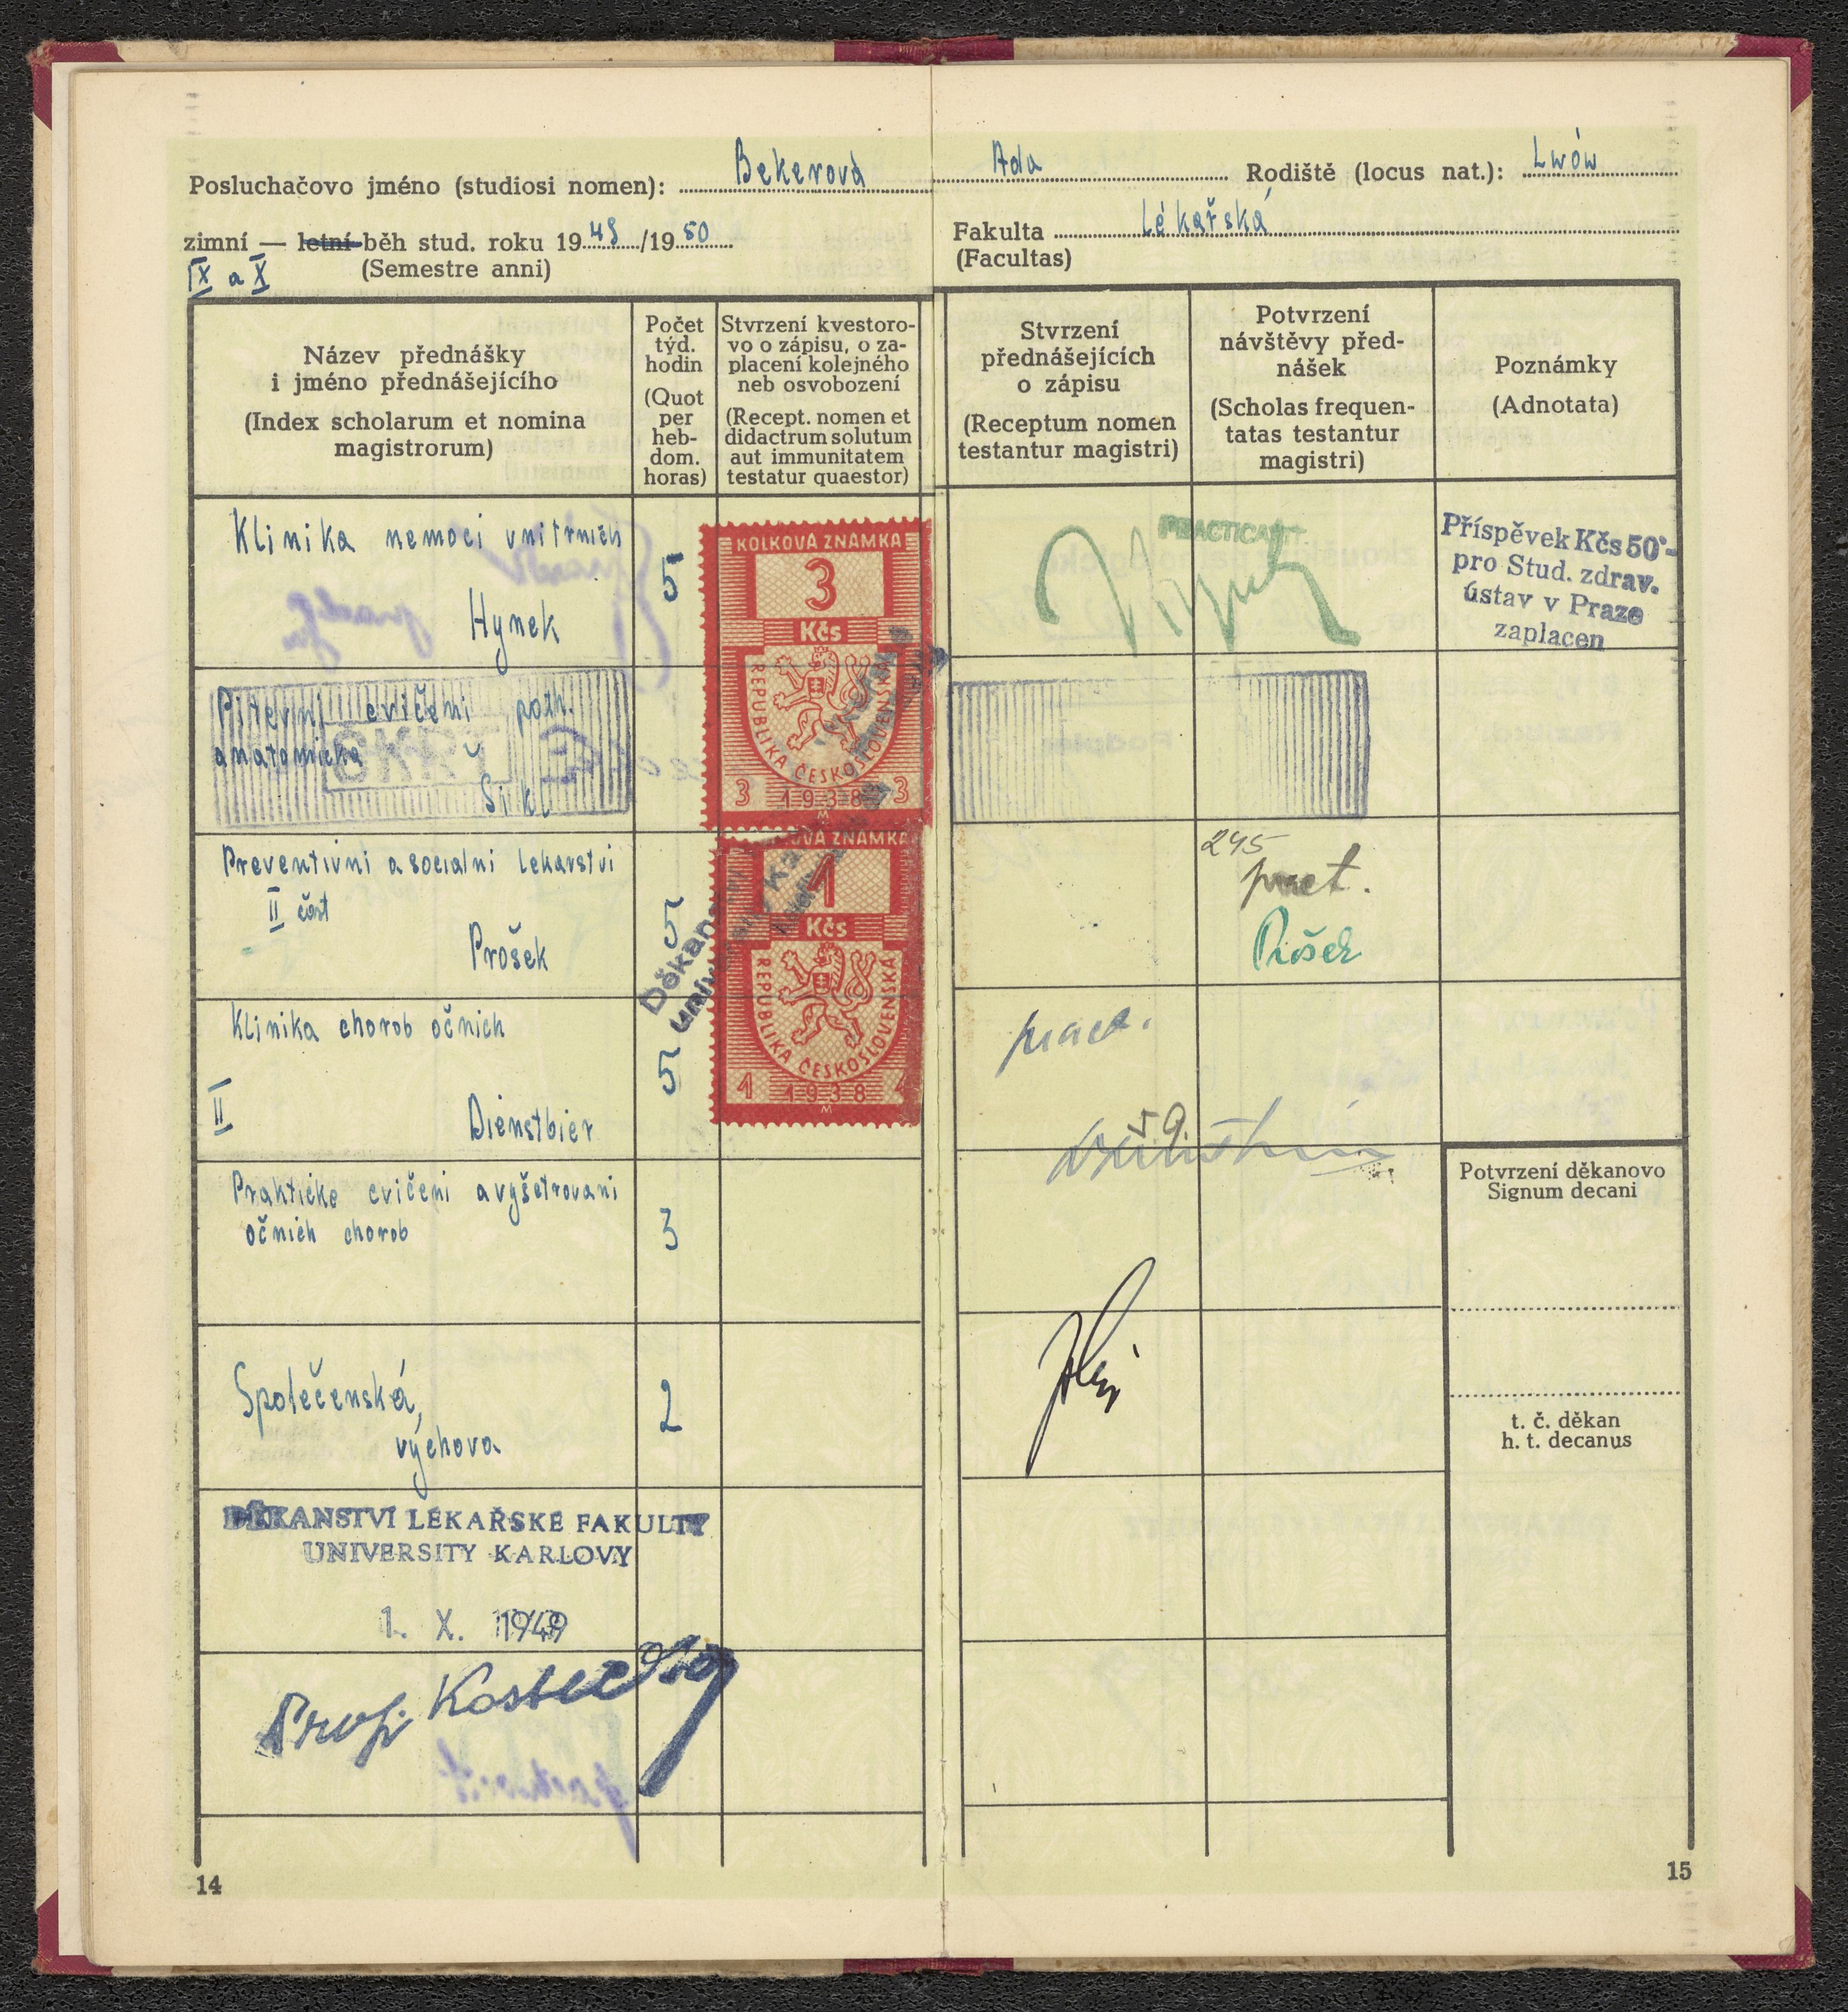 Posluchačovo jméno (studiosi nomen): Bekerová Ada Rodiště (locus nat.): Lwów
zimní — letní běh stud. roku 1949/1950
(Semestre anni)
IX a X
Fakulta Lékařská
(Facultas)
Název přednášky
i jméno přednášejícího
(Index scholarum et nomina
magistrorum)
Počet
týd.
hodin
(Quot
per
heb-
dom.
horas)
Stvrzení kvestoro-
vo o zápisu, o za-
placení kolejného
neb osvobození
(Recept. nomen et
didactrum solutum
aut immunitatem
testatur quaestor)
Stvrzení
přednášejících
o zápisu
(Receptum nomen
testantur magistri)
Potvrzení
návštěvy před-
nášek
(Scholas frequen-
tatas testantur
magistri)
Poznámky
(Adnotata)
Klinika nemocí vnitřních
Hynek
5
KOLKOVÁ ZNÁMKA
3
Kčs
REPUBLIKA ČESKOSLOVENSKÁ
3 1938 3
M
PRACTICANT
Hynek
Příspěvek Kčs 50·-
pro Stud. zdrav.
ústav v Praze
zaplacen
Pitevní cvičení path.
anatomická
Šikl
Preventivní a sociální lékařství
II část
Prošek
5
KOLKOVÁ ZNÁMKA
1
Kčs
REPUBLIKA ČESKOSLOVENSKÁ
1 1938 1
M
Děkan
univ
245
pract.
Prošek
Klinika chorob očních
II
Dienstbier
5
pract.
59.
Praktické cvičení a vyšetrovaní
očních chorob
3
Potvrzení děkanovo
Signum decani
Společenská
výchova
2
t. č. děkan
h. t. decanus
DĚKANSTVÍ LÉKAŘSKÉ FAKULTY
UNIVERSITY KARLOVY
1. X. 1949
Prof. Kostečka
14
15